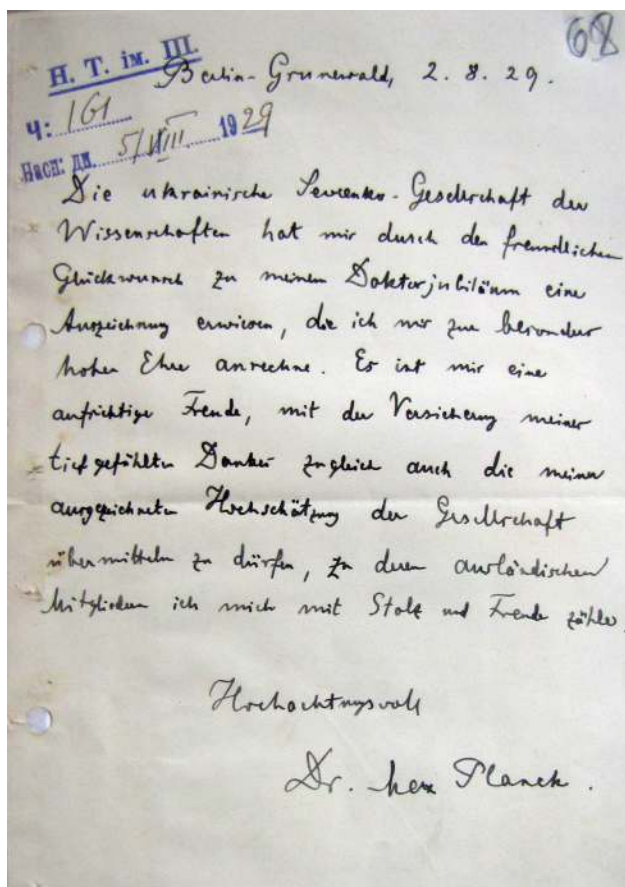 68
Н. Т. ім. Ш.
Berlin-Grunewald, 2. 8. 29.
Ч: 161
Насп: дн. 5/VIII 1929
Die ukrainische Sevcenko-Gesellschaft der
Wissenschaften hat mir durch den freundlichen
Glückwunsch zu meinem Doktorjubiläum eine
Auszeichnung erwiesen, die ich mir zur besonders
hohen Ehre anrechne. Es ist mir eine
aufrichtige Freude, mit der Versicherung meines
tiefgefühlten Dankes zugleich auch die meiner
ausgezeichneten Hochschätzung der Gesellschaft
übermitteln zu dürfen, zu deren ausländischen
Mitgliedern ich mich mit Stolz und Freude zähle.
Hochachtungsvoll
Dr. Max Planck.